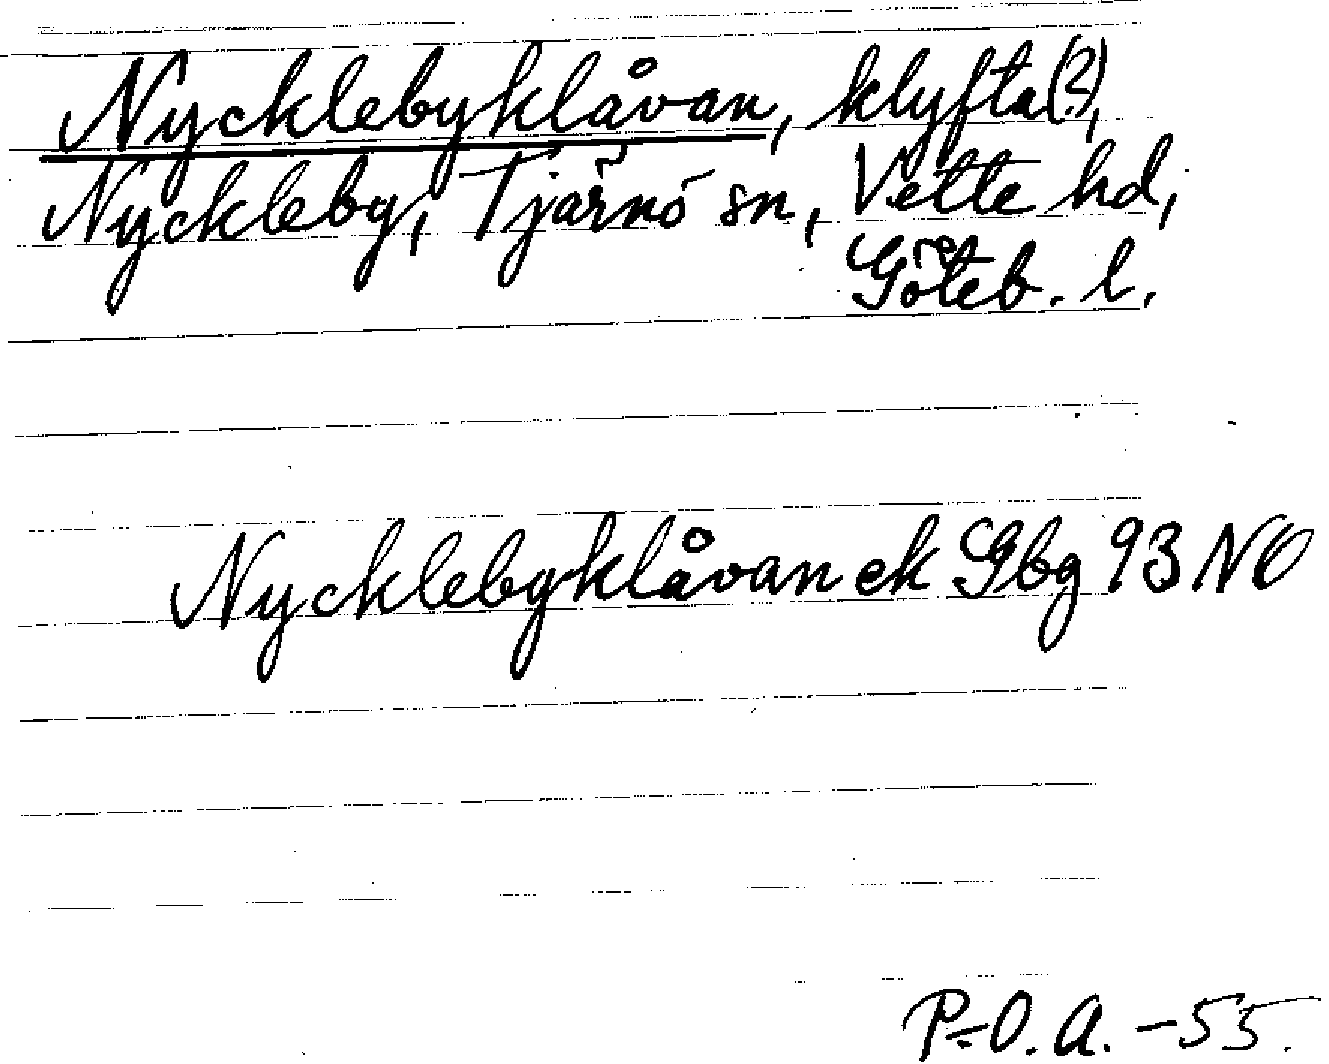 Nycklebyklåvan, klyfta(?),
Nyckleby, Tjärnö sn, Vette hd,
Göteb. l.
Nycklebyklåvan ek Gbg 93 NO
P-O. A. -55.